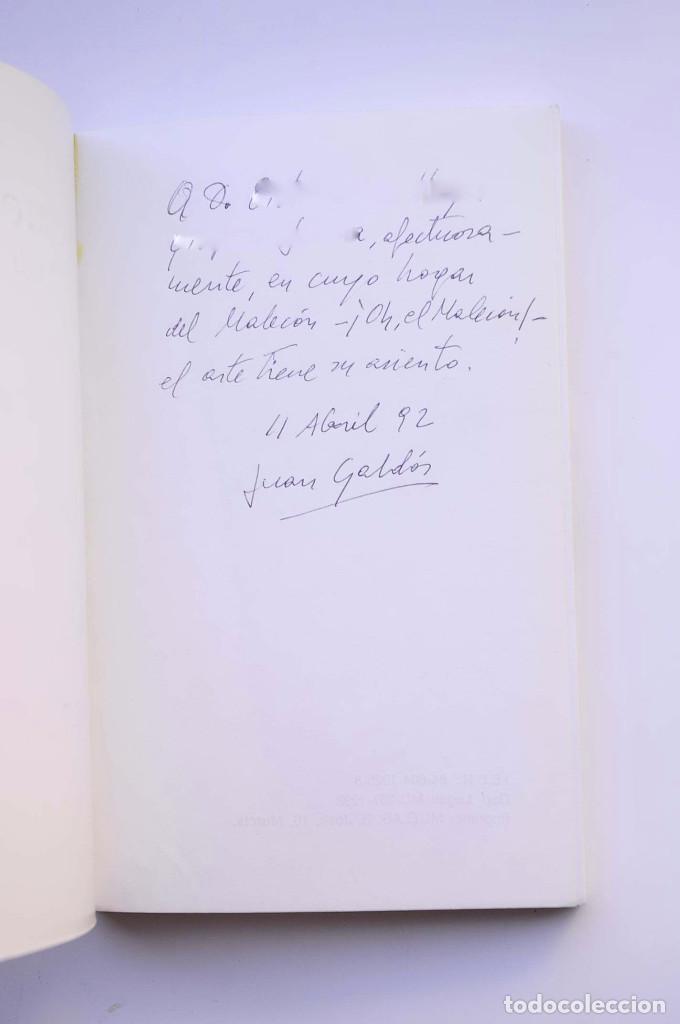 A D.
afectuosa-
mente, en cuyo hogar
del Malecón -¡Oh, el Malecón!-
el arte tiene su asiento.
11 Abril 92
Juan Galdós
todocoleccion